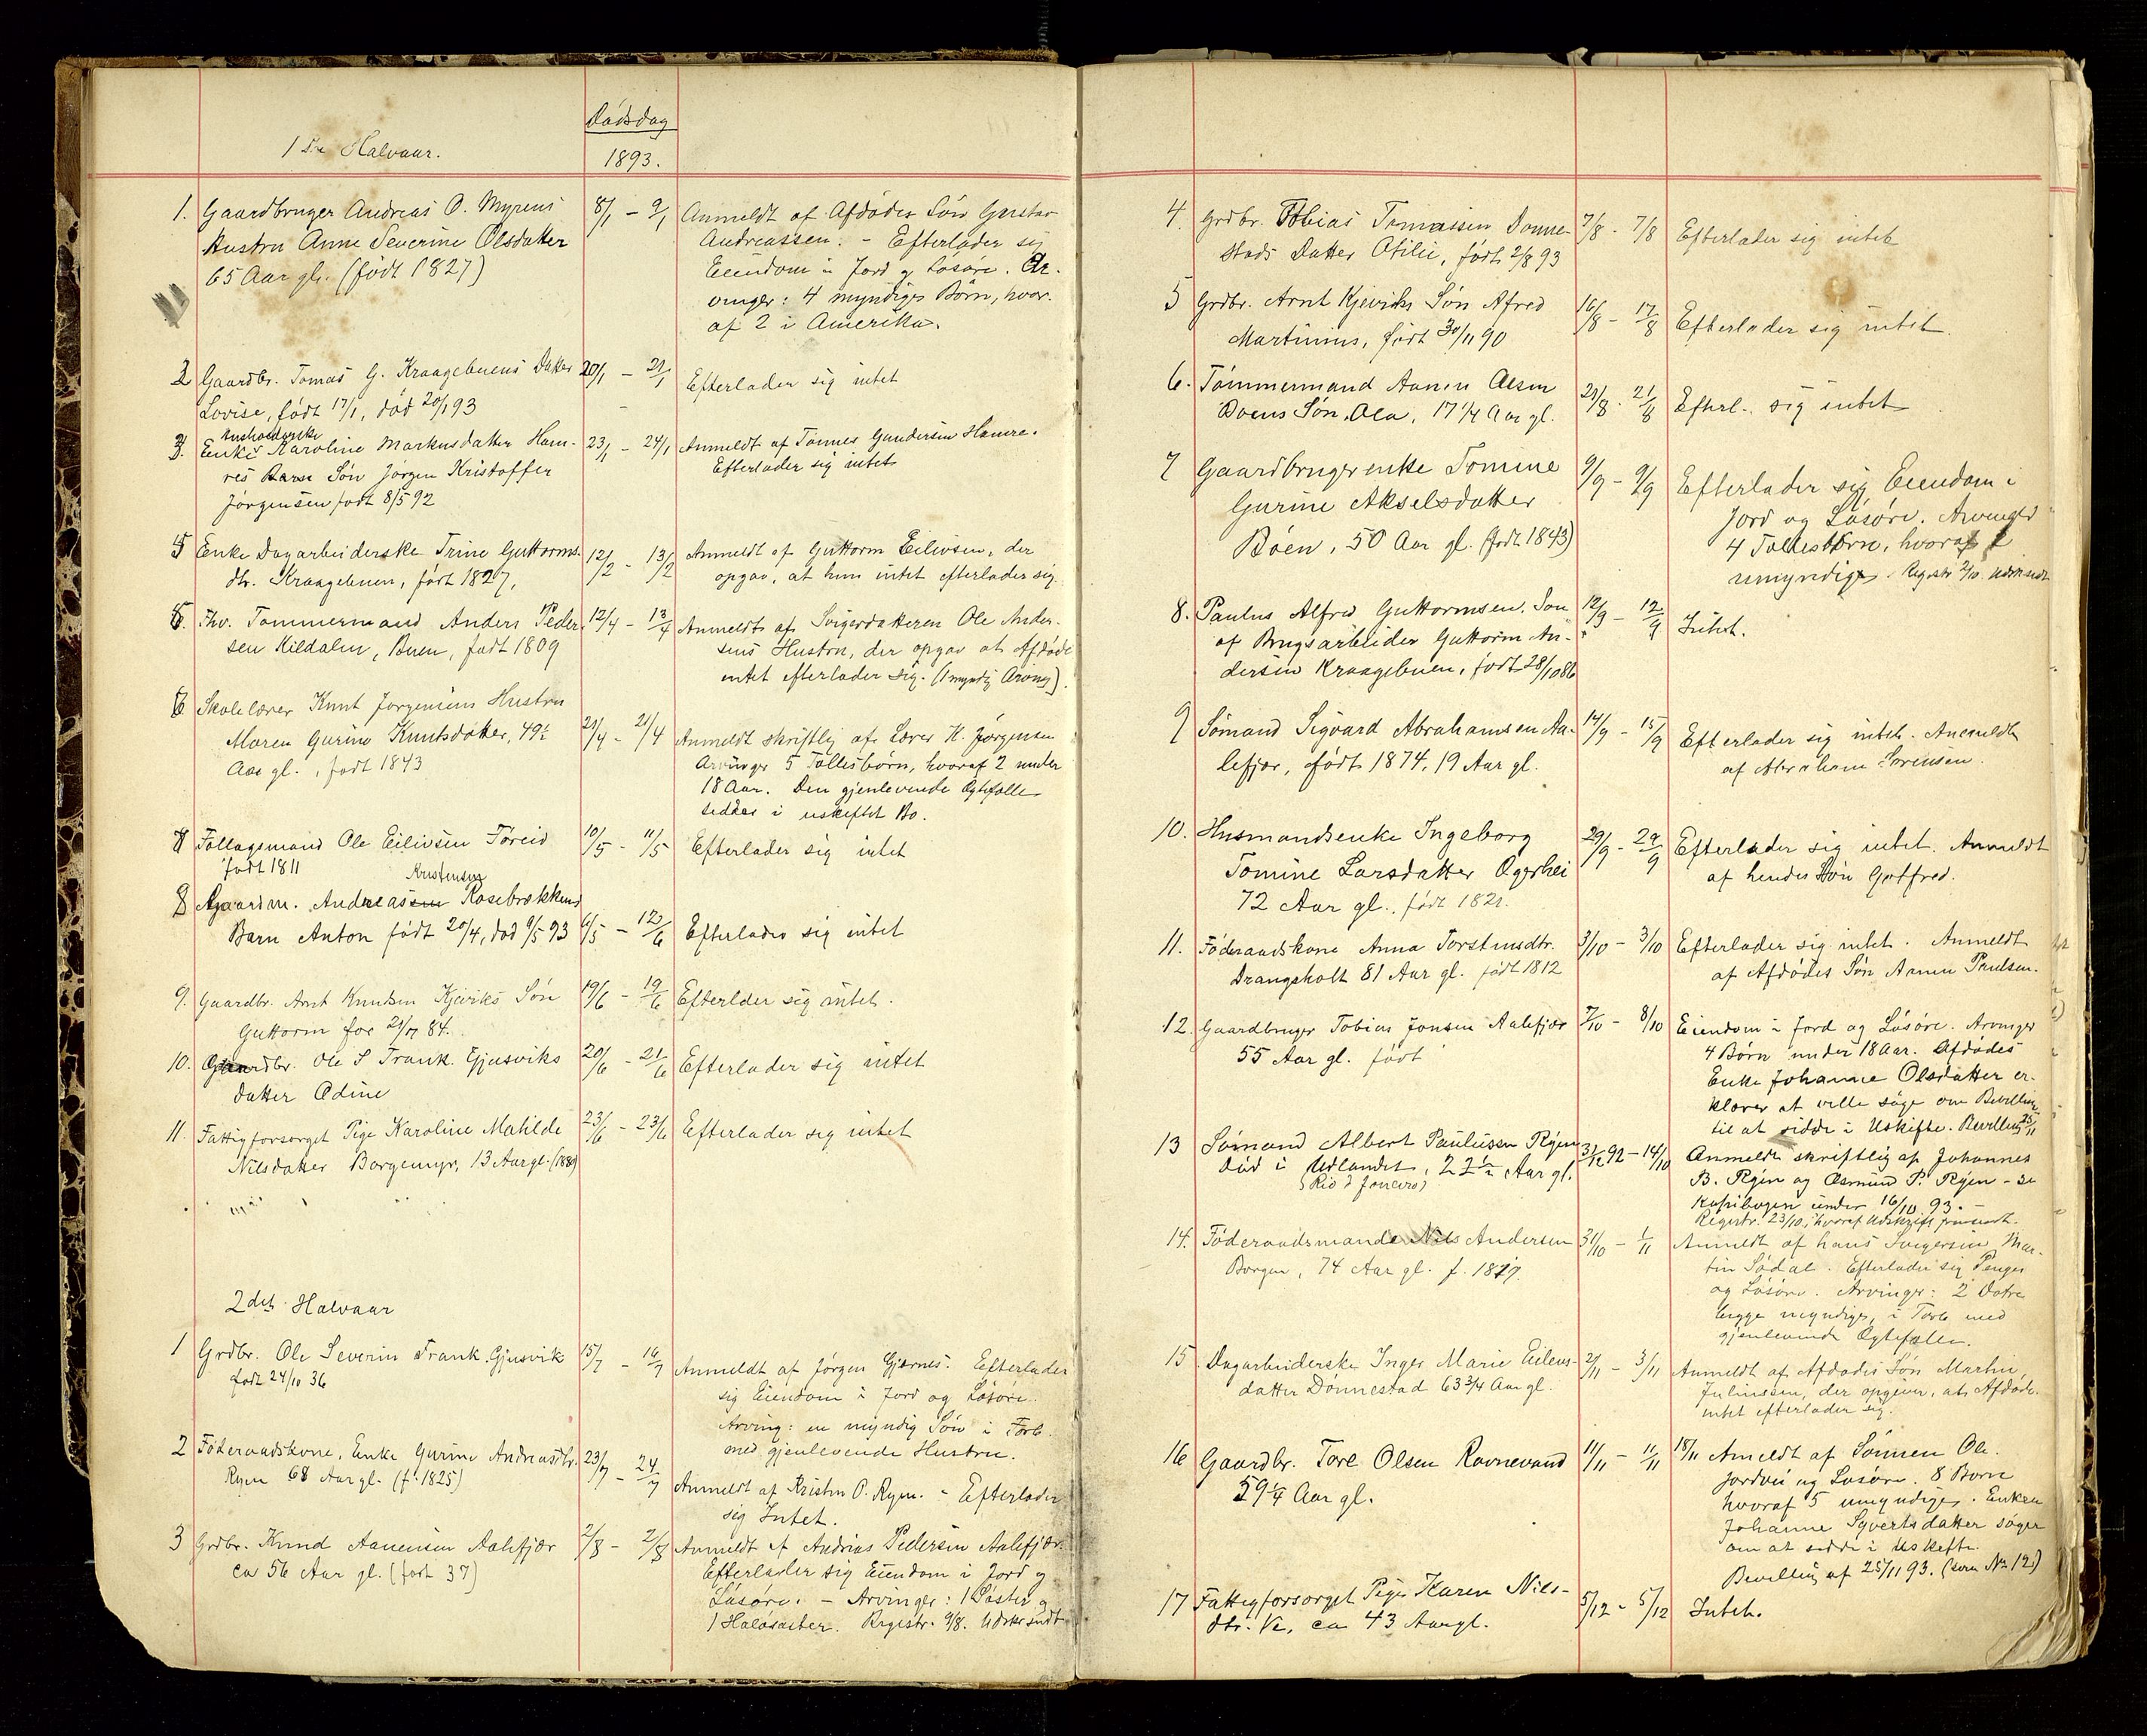 1ste Halvaar.
Dødsdag
1893.
1. Gaardbruger Andreas O. Myrens 8/1 - 9/1 Anmeldt af Afdødes Søn Gustav
Hustru Anne Severine Olsdatter Andreassen. - Efterlader sig
65 Aar gl. (født 1827) Eiendom i Jord og Løsøre. Ar-
vinger: 4 myndige Børn, hvor-
af 2 i Amerika.
2 Gaardbr. Tomas G. Kraagebuens Datter 20/1 - 21/1 Efterlader sig intet
Lovise, født 17/1, død 20/1 93
Husholderske
3. Enke Karoline Markusdatter Ham- 23/1 - 24/1 Anmeldt af Tønnes Gundersen Hamre.
res Barn Søn Jørgen Kristoffer Efterlader sig intet
Jørgensen født 8/5 92
4 Enke Dagarbeiderske Trine Guttorms- 12/2 - 13/2 Anmeldt af Guttorm Eilivsen, der
dtr. Kraagebuen, født 1827, opgav, at hun intet efterlader sig.
5. Fhv. Tømmermand Anders Peder- 12/4 - 13/4 Anmeldt af Svigerdatteren Ole Ander-
sen Kildalen, Buen, født 1809 sens Hustru, der opgav at Afdøde
intet efterlader sig. (1 myndig Arving).
6 Skolelærer Knut Jørgensens Hustru
Maren Gurine Knutsdatter, 49½ 21/4 - 21/4 Anmeldt skriftlig af Lærer K. Jørgensen
Aar gl., født 1843 Arvinger 5 Fællesbørn, hvoraf 2 under
18 Aar. Den gjenlevende Ægtefælle
sidder i uskiftet Bo.
7 Follagsmand Ole Eilivsen Føreid 10/5 - 11/5 Efterlader sig intet
født 1811
Kristensen
8 Gaardm. Andreassen Rosebrækkens
Barn Anton født 20/4, død 6/5 93 6/5 - 12/6 Efterlader sig intet
9. Gaardbr. Arnt Knutsen Kjeviks Søn 19/6 - 19/6 Efterlder sig intet.
Guttorm før 21/7 84.
10. Gaardbr. Ole S Frank. Gjusviks 20/6 - 21/6 Efterlader sig intet
datter Odine
11. Fattigforsørget Pige Karoline Matilde 23/6 - 23/6 Efterlader sig intet
Nilsdatter Borgemyr, 13 Aar gl. (1880)
2det Halvaar
1 Grdbr. Ole Severin Frank. Gjusvik 15/7 - 16/7 Anmeldt af Jørgen Gjernes. Efterlader
født 24/10 36 sig Eiendom i Jord og Løsøre.
Arving: en myndig Søn i Forb.
med gjenlevende Hustru.
2 Føderaadskone, Enke Gurine Andreasdtr. 23/7 - 24/7
Ryen 68 Aar gl. (f. 1825) Anmeldt af Kristen P. Ryen. - Efterlader
sig Intet.
3 Grdbr. Knud Aanensen Aalefjær 2/8 - 2/8 Anmeldt af Andreas Pedersen Aalefjær.
ca 56 Aar gl. (født 37) Efterlader sig Eiendom i Jord og
Løsøre. - Arvinger: 1 Søster og
1 Halvsøster. Registr. 9/8. Udskr sendt
4. Grdbr. Tobias Tomassen Dønne- 7/8 - 7/8 Efterlader sig intet
stads Datter Otilie, født 2/8 93
5 Grdbr. Arnt Kjeviks Søn Afred 16/8 - 17/8 Efterlader sig intet.
Martinius, født 30/11 90
6. Tømmermand Aanen Aesen
Boens Søn Ola, 17¼ Aar gl. 21/8 - 21/8 Efterl. sig intet
7 Gaardbrugerenke Tomine 9/9 - 9/9 Efterlader sig Eiendom i
Gurine Akselsdatter Jord og Løsøre. Arvinger
Bøen, 50 Aar gl. (født 1843) 4 Fællesbørn, hvoraf 1
umyndig. Registr 2/10. Udskr sendt
8. Paulus Alfred Guttormsen, Søn 12/9 - 12/9 Intet.
af Brugsarbeider Guttorm An-
dersen Kraagebuen, født 28/10 86
9 Sømand Sigvard Abrahamsen Aa- 14/9 - 15/9 Efterlader sig intet. Anmeldt
lefjær, født 1874, 19 Aar gl. af Abraham Sørensen.
10. Husmandsenke Ingeborg 29/9 - 29/9 Efterlader sig intet. Anmeldt
Tomine Larsdatter Ogerhei af hendes Søn Gotfred.
72 Aar gl., født 1821.
11. Føderaadskone Anna Torstensdtr. 3/10 - 3/10 Efterlader sig intet. Anmeldt
Drangsholt 81 Aar gl. født 1812 af Afdødes Søn Aanen Paulsen.
12. Gaardbruger Tobias Jonsen Aalefjær 7/10 - 8/10 Eiendom i Jord og Løsøre. Arvinger
55 Aar gl. født 4 Børn under 18 Aar. Afdødes
Enke Johanne Olsdatter er-
klærer at ville søge om Bevilling
til at sidde i Uskifte. Bevilling 25/11
13 Sømand Albert Paulussen Ryen 31/12 92 - 14/10 Anmeldt skriftlig af Johannes
død i Udlandet, 22½ Aar gl. B. Ryen og Osmund P. Ryen - se
(Rio d Janeiro) Kopibogen under 16/10 93. -
Registr. 23/10, hvoraf Udskrift fremsendt.
14. Føderaadsmande Nils Andersen 31/10 - 1/11 Anmeldt af hans Svigersøn Mar-
Borgen, 74 Aar gl. f. 1819. tin Sødal. Efterlader sig Penger
og Løsøre. Arvinger: 2 Døtre
begge myndige, i Forb med
gjenlevende Ægtefælle.
15 Dagarbeiderske Inger Marie Eilevs- 2/11 - 3/11 Anmeldt af Afdødes Søn Martin
datter Dønnestad 63¾ Aar gl. Juliussen, der opgiver, at Afdøde
intet efterlader sig.
16 Gaardbr. Tore Olsen Ravnevand 11/11 - 11/11 18/11 Anmeldt af Sønnen Ole.
59¼ Aar gl. Jordvei og Løsøre. 8 Børn
hvoraf 5 umyndiger. Enken
Johanne Syvertsdatter søger
om at sidde i Uskifte.
Bevilling af 25/11 93. (som No 12)
17 Fattigforsørget Pige Karen Nils- 5/12 - 5/12 Intet.
dtr. Ve, ca 43 Aar gl.